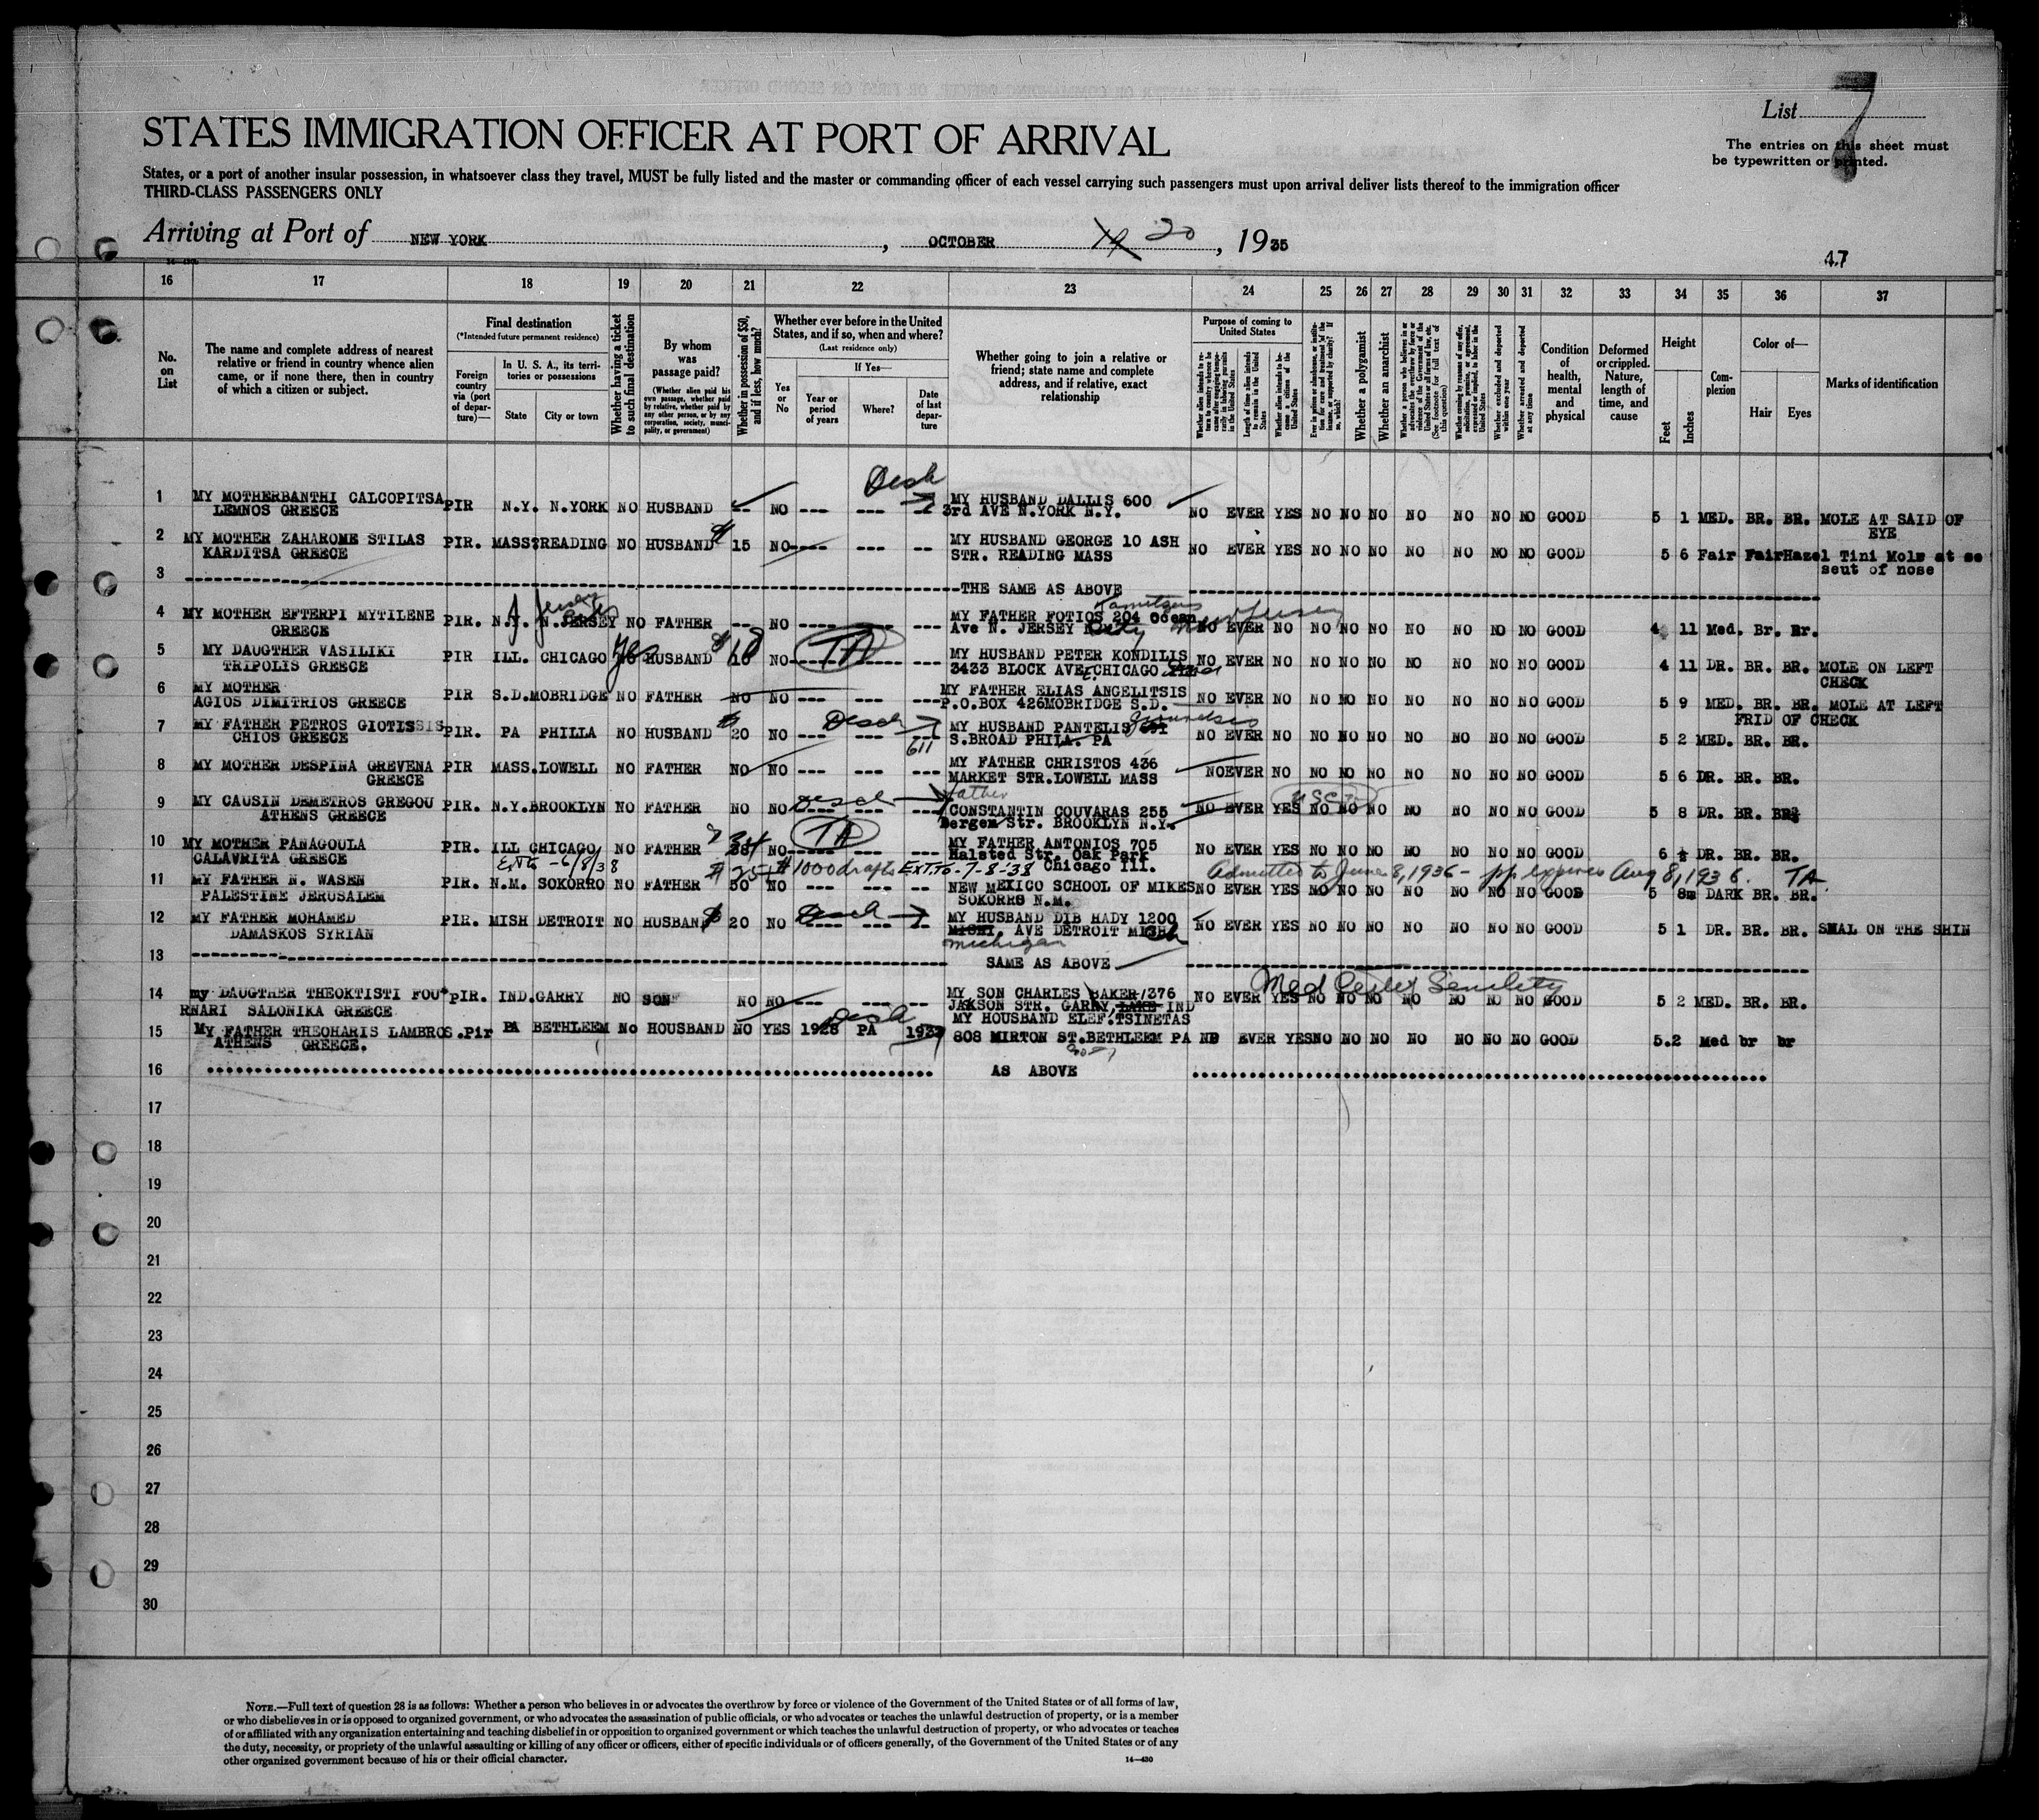 List 7
STATES IMMIGRATION OFFICER AT PORT OF ARRIVAL
The entries on this sheet must
be typewritten or printed.
States, or a port of another insular possession, in whatsoever class they travel, MUST be fully listed and the master or commanding officer of each vessel carrying such passengers must upon arrival deliver lists thereof to the immigration officer
THIRD-CLASS PASSENGERS ONLY
Arriving at Port of NEW YORK, OCTOBER 19 20, 1935
47
16 17 18 19 20 21 22 23 24 25 26 27 28 29 30 31 32 33 34 35 36 37
No. on List
The name and complete address of nearest
relative or friend in country whence alien
came, or if none there, then in country
of which a citizen or subject.
Final destination
(*Intended future permanent residence)
Foreign country via (port of departure)—
In U. S. A., its territories or possessions
State
City or town
Whether having a ticket to such final destination
By whom was passage paid?
(Whether alien paid his own passage, whether paid by relative, whether paid by any other person, or by any corporation, society, municipality, or government)
Whether in possession of $50, and if less, how much?
Whether ever before in the United States, and if so, when and where?
(Last residence only)
Yes or No
If Yes—
Year or period of years
Where?
Date of last departure
Whether going to join a relative or
friend; state name and complete
address, and if relative, exact
relationship
Purpose of coming to United States
Length of time alien intends to remain in the United States
Whether alien intends to become a citizen of the United States
Whether a polygamist
Whether an anarchist
Whether excluded and deported within one year
Whether arrested and deported at any time
Condition of health, mental and physical
Deformed or crippled. Nature, length of time, and cause
Height
Feet
Inches
Complexion
Color of—
Hair
Eyes
Marks of identification
Desk
1 MY MOTHERBANTHI CALCOPITSA PIR N.Y. N.YORK NO HUSBAND -- NO --- --- -- MY HUSBAND DALLIS 600 NO EVER YES NO NO NO NO NO NO NO GOOD 5 1 MED. BR. BR. MOLE AT SAID OF
LEMNOS GREECE 3rd AVE N.YORK N.Y. EYE
2 MY MOTHER ZAHAROME STILAS PIR. MASS READING NO HUSBAND $ 15 NO --- --- -- MY HUSBAND GEORGE 10 ASH NO EVER YES NO NO NO NO NO NO NO GOOD 5 6 Fair Fair Hazel Tini Mole at se
KARDITSA GREECE STR. READING MASS seut of nose
3 THE SAME AS ABOVE
4 MY MOTHER EFTERPI MYTILENE PIR. N.Y. N.JERSEY NO FATHER -- NO --- --- -- MY FATHER FOTIOS 204 Ocean NO EVER NO NO NO NO NO NO NO NO GOOD 4 11 Med. Br. Br.
GREECE Ave N. JERSEY City
5 MY DAUGTHER VASILIKI PIR ILL. CHICAGO yes HUSBAND $ 10 NO TA --- -- MY HUSBAND PETER KONDILIS NO EVER NO NO NO NO NO NO NO NO GOOD 4 11 DR. BR. BR. MOLE ON LEFT
TRIPOLIS GREECE 3433 BLOCK AVE.CHICAGO CHECK
6 MY MOTHER PIR S.D.MOBRIDGE NO FATHER NO NO --- --- --- MY FATHER ELIAS ANGELITSIS NO EVER NO NO NO NO NO NO NO NO GOOD 5 9 MED. BR. BR. MOLE AT LEFT
AGIOS DIMITRIOS GREECE P.O.BOX 426MOBRIDGE S.D. FRID OF CHECK
7 MY FATHER PETROS GIOTISSIS PIR. PA PHILLA NO HUSBAND $ 20 NO Desk --- -- MY HUSBAND PANTELIS NO EVER NO NO NO NO NO NO NO NO GOOD 5 2 MED. BR. BR.
CHIOS GREECE 611 S.BROAD PHILA. PA
8 MY MOTHER DESPINA GREVENA PIR MASS.LOWELL NO FATHER NO NO --- --- -- MY FATHER CHRISTOS 436 NO EVER NO NO NO NO NO NO NO NO GOOD 5 6 DR. BR. BR.
GREECE MARKET STR.LOWELL MASS
9 MY CAUSIN DEMETROS GREGOU PIR. N.Y.BROOKLYN NO FATHER NO NO Desk --- -- father CONSTANTIN COUVARAS 255 NO EVER YES NO NO NO NO NO NO NO GOOD 5 8 DR. BR. BR.
ATHENS GREECE Bergen Str. BROOKLYN N.Y. USC
10 MY MOTHER PANAGOULA PIR. ILL CHICAGO NO FATHER 34 NO TA --- -- MY FATHER ANTONIOS 705 NO EVER YES NO NO NO NO NO NO NO GOOD 6 DR. BR. BR.
CALAVRITA GREECE Halsted Str. Oak Park
Chicago Ill.
Ext -6/8/38 $1000 drafts EXT.To-7-8-38 Admitted to June 8, 1936 - pp expires Aug 8, 1936. TA
11 MY FATHER N. WASEN PIR. N.M. SOKORRO NO FATHER 50 NO --- --- -- NEW MEXICO SCHOOL OF MIKES NO EVER YES NO NO NO NO NO NO NO GOOD 5 8 DARK BR. BR.
PALESTINE JERUSALEM SOKORRO N.M.
12 MY FATHER MOHAMED PIR. MISH DETROIT NO HUSBAN $ 20 NO Desk --- -- MY HUSBAND DIB HADY 1200 NO EVER YES NO NO NO NO NO NO NO GOOD 5 1 DR. BR. BR. SMAL ON THE SHIN
DAMASKOS SYRIAN MICHI. AVE DETROIT MICH
michigan
13 SAME AS ABOVE
Med Cert Senility
14 my DAUGTHER THEOKTISTI FOU PIR. IND.GARRY NO SON NO NO --- -- MY SON CHARLES BAKER 1376 NO EVER YES NO NO NO NO NO NO NO GOOD 5 2 MED. BR. BR.
RNARI SALONIKA GREECE JAKSON STR. GARRY, LAKE IND
MY HOUSBAND ELEF.TSINETAS
15 MY FATHER THEOHARIS LAMBROS.Pir PA BETHLEEM No HOUSBAND NO YES 1928 PA 1932 808 MIRTON ST.BETHLEEM PA NO EVER YES NO NO NO NO NO NO NO GOOD 5.2 Med br br
ATHENS GREECE.
16 AS ABOVE
17
18
19
20
21
22
23
24
25
26
27
28
29
30
NOTE.—Full text of question 28 is as follows: Whether a person who believes in or advocates the overthrow by force or violence of the Government of the United States or of all forms of law,
or who disbelieves in or is opposed to organized government, or who advocates the assassination of public officials, or who advocates or teaches the unlawful destruction of property, or is a member
of or affiliated with any organization entertaining and teaching disbelief in or opposition to organized government or which teaches the unlawful destruction of property, or who advocates or teaches
the duty, necessity, or propriety of the unlawful assaulting or killing of any officer or officers, either of specific individuals or of officers generally, of the Government of the United States or of any
other organized government because of his or their official character.
14—430